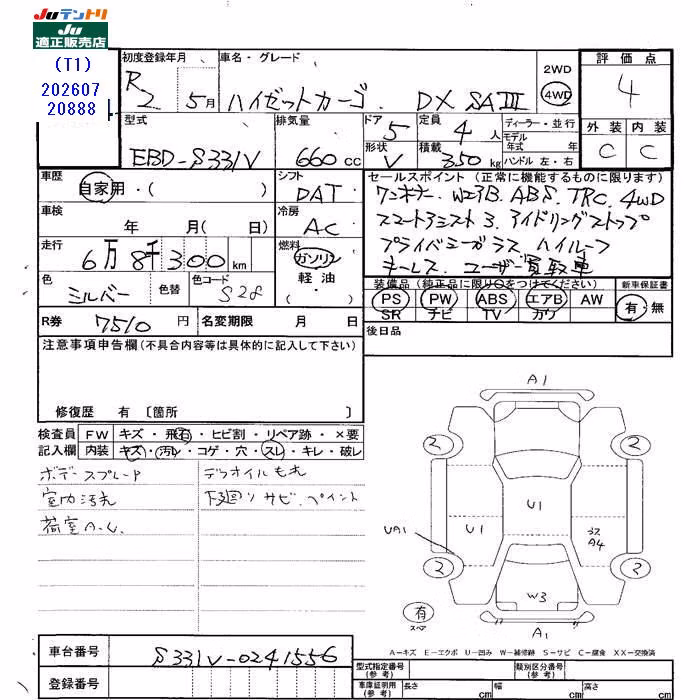 Juテントリ
Ju
適正販売店
(T1)
202607
20888
初度登録年月 車名・グレード
R2 5月 ハイゼットカーゴ. DX SAIII
2WD
4WD
評価点
4
外装 内装
C C
型式 排気量 ドア 定員 ディーラー・並行
EBD-S331V 660cc 5 4人
モデル年式 年式
形状 積載 ハンドル 左・右
V 350kg
車歴 シフト
自家用・( ) DAT
車検 冷房
年 月 ( 日) AC
走行 燃料
6万8千300km ガソリン
軽・油
( )
色 色替 色コード
シルバー S28
R券 7510円 名変期限 月 日
セールスポイント (正常に機能するものに限ります)
ワンオナー. WエアB. ABS. TRC. 4WD
スマートアシスト3. アイドリングストップ
プライバシーガラス ハイルーフ
キーレス. ユーザー買取車
装備品 (純正品に限り○をつけてください) 新車保証書
PS PW ABS エアB AW 有・無
SR ナビ TV カワ
後日品
注意事項申告欄(不具合内容等は具体的に記入して下さい)
修復歴 有 〔箇所 〕
検査員 FW キズ・飛石・ヒビ割・リペア跡・×要
記入欄 内装 キズ・汚レ・コゲ・穴・スレ・キレ・破レ
ボデースプレーP デフオイルもれ
室内汚れ 下廻りサビ. ペイント
荷室A.U.
A1
2 2
U1
UA1 U1 A4
2 2
W3
有
スペア
A1
A-キズ E-エクボ U-凹み W-補修跡 S-サビ C-腐食 XX-交換済
車台番号 S331V-0241556
登録番号
型式指定番号(参考) 類別区分番号(参考)
車庫証明用(参考) 長さ cm 幅 cm 高さ cm